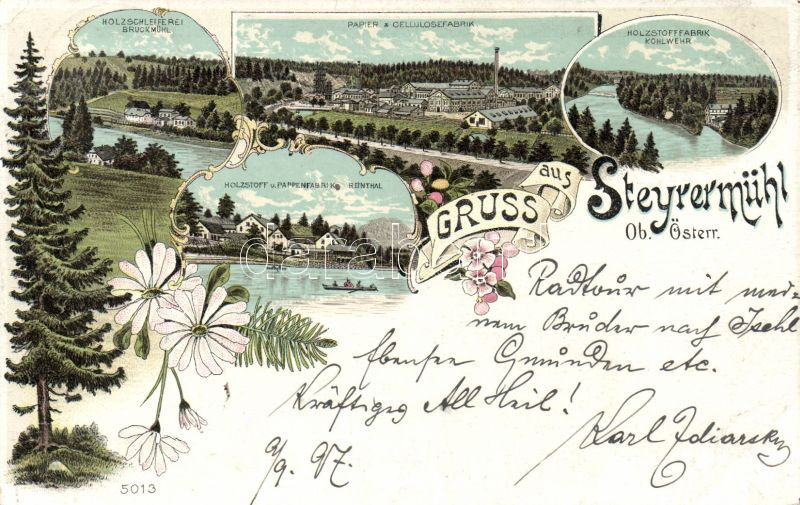 HOLZSCHLEIFEREI
BRUCKMÜHL
PAPIER & CELLULOSEFABRIK
HOLZSTOFFFABRIK
KOHLWEHR
HOLZSTOFF U. PAPPENFABRIK REINTHAL
GRUSS aus
Steyrermühl
Ob. Österr.
Radtour mit mei-
nem Bruder nach Ischl
Ebensee Gmunden etc.
Kräftiges All Heil!
Karl
9/9. 97.
5013